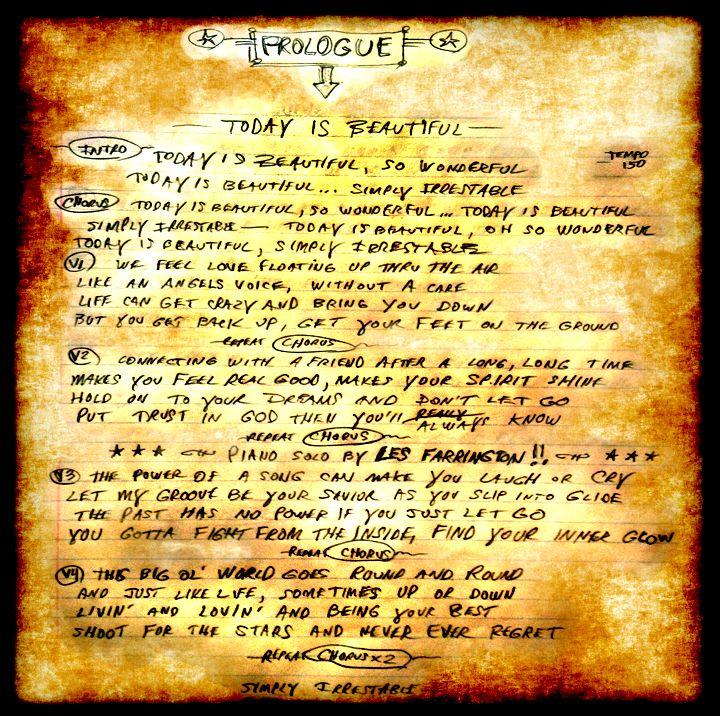 PROLOGUE
TODAY IS BEAUTIFUL
INTRO TODAY IS BEAUTIFUL, SO WONDERFUL TEMPO 150
TODAY IS BEAUTIFUL... SIMPLY IRRESTABLE
CHORUS TODAY IS BEAUTIFUL, SO WONDERFUL... TODAY IS BEAUTIFUL
SIMPLY IRRESTABLE — TODAY IS BEAUTIFUL, OH SO WONDERFUL
TODAY IS BEAUTIFUL, SIMPLY IRRESTABLE
V1 WE FEEL LOVE FLOATING UP THRU THE AIR
LIKE AN ANGELS VOICE, WITHOUT A CARE
LIFE CAN GET CRAZY AND BRING YOU DOWN
BUT YOU GET BACK UP, GET YOUR FEET ON THE GROUND
REPEAT CHORUS
V2 CONNECTING WITH A FRIEND AFTER A LONG, LONG TIME
MAKES YOU FEEL REAL GOOD, MAKES YOUR SPIRIT SHINE
HOLD ON TO YOUR DREAMS AND DON'T LET GO
PUT TRUST IN GOD THEN YOU'LL REALLY ALWAYS KNOW
REPEAT CHORUS
★★★ PIANO SOLO BY LES FARRINGTON!! ★★★
V3 THE POWER OF A SONG CAN MAKE YOU LAUGH OR CRY
LET MY GROOVE BE YOUR SAVIOR AS YOU SLIP INTO GLIDE
THE PAST HAS NO POWER IF YOU JUST LET GO
YOU GOTTA FIGHT FROM THE INSIDE, FIND YOUR INNER GLOW
REPEAT CHORUS
V4 THIS BIG OL' WORLD GOES ROUND AND ROUND
AND JUST LIKE LIFE, SOMETIMES UP OR DOWN
LIVIN' AND LOVIN' AND BEING YOUR BEST
SHOOT FOR THE STARS AND NEVER EVER REGRET
REPEAT CHORUS x 2
SIMPLY IRRESTABLE